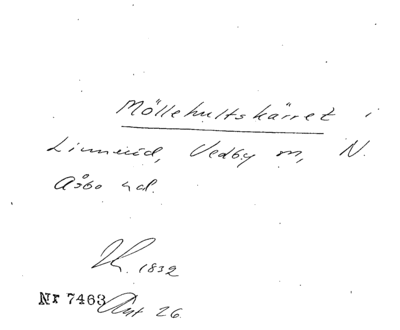 Möllehultskärret i
Linneröd, Vedby sn, N.
Åsbo hd.
K. 1832
Nr 7463 Akt 26.